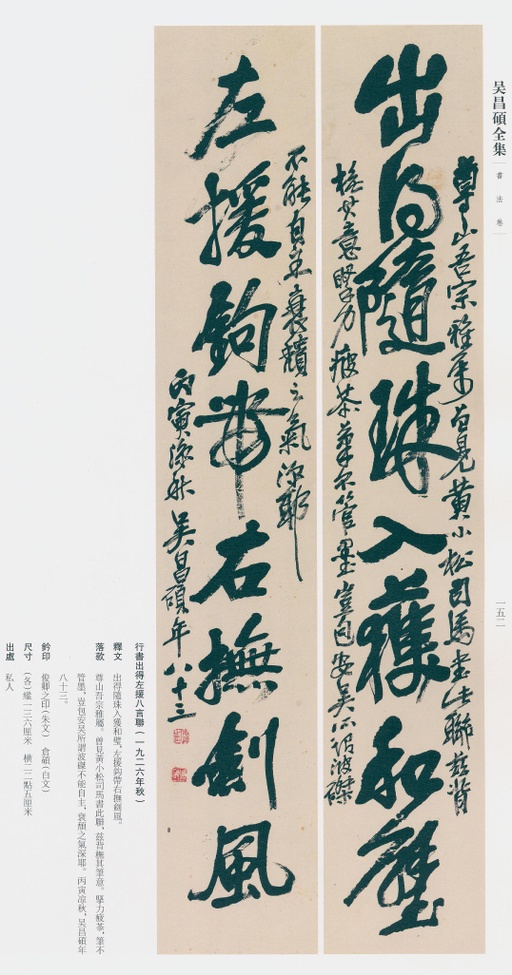 吴昌碩全集
書法卷
一五二
出得隨珠入獲和璧
尊山吾宗雅屬曾見黄小松司馬書此聯兹背
橅其筆意腕力疲苶筆不管墨豈包安吴所謂波磔
左援鉤帶右撫劍風
不能自主衰穨之氣深耶
丙寅涼秋吴昌碩年八十三
行書出得左援八言聯(一九二六年秋)
釋文 出得隨珠入獲和璧,左援鉤帶右撫劍風。
落款 尊山吾宗雅屬。曾見黄小松司馬書此聯,兹背橅其筆意。擥力疲苶,筆不
管墨,豈包安吴所謂波磔不能自主,衰頹之氣深耶。丙寅凉秋,吴昌碩年
八十三。
鈐印 俊卿之印(朱文) 倉碩(白文)
尺寸 (各)縱一三六厘米 横二二點五厘米
出處 私人